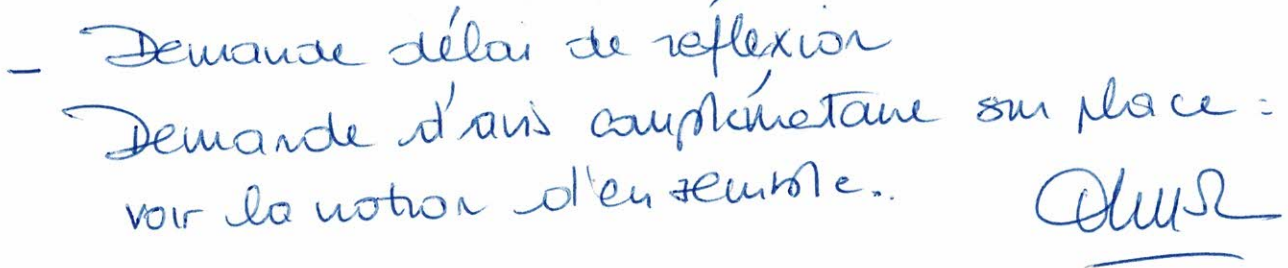 - Demande délai de réflexion
Demande d'avis complémentaire sur place :
voir la notion d'ensemble..